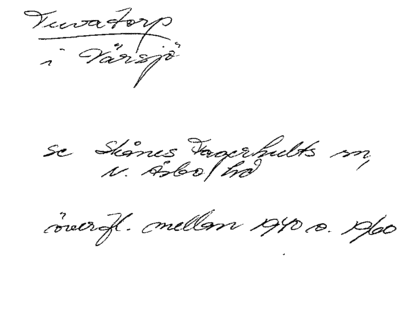 Tuvatorp
i Värsjö
se Skånes Fagerhults sn,
N. Åsbo hd
överfl. mellan 1940 o. 1960